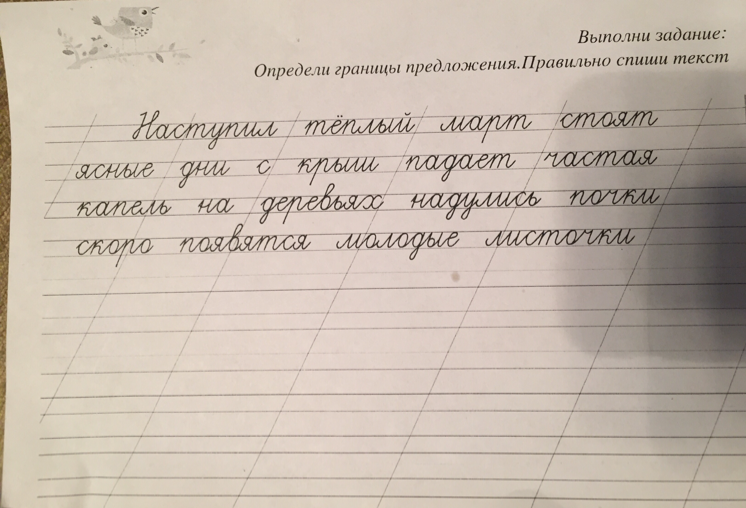 Выполни задание:
Определи границы предложения.Правильно спиши текст
Наступил тёплый март стоят
ясные дни с крыш падает частая
капель на деревьях надулись почки
скоро появятся молодые листочки